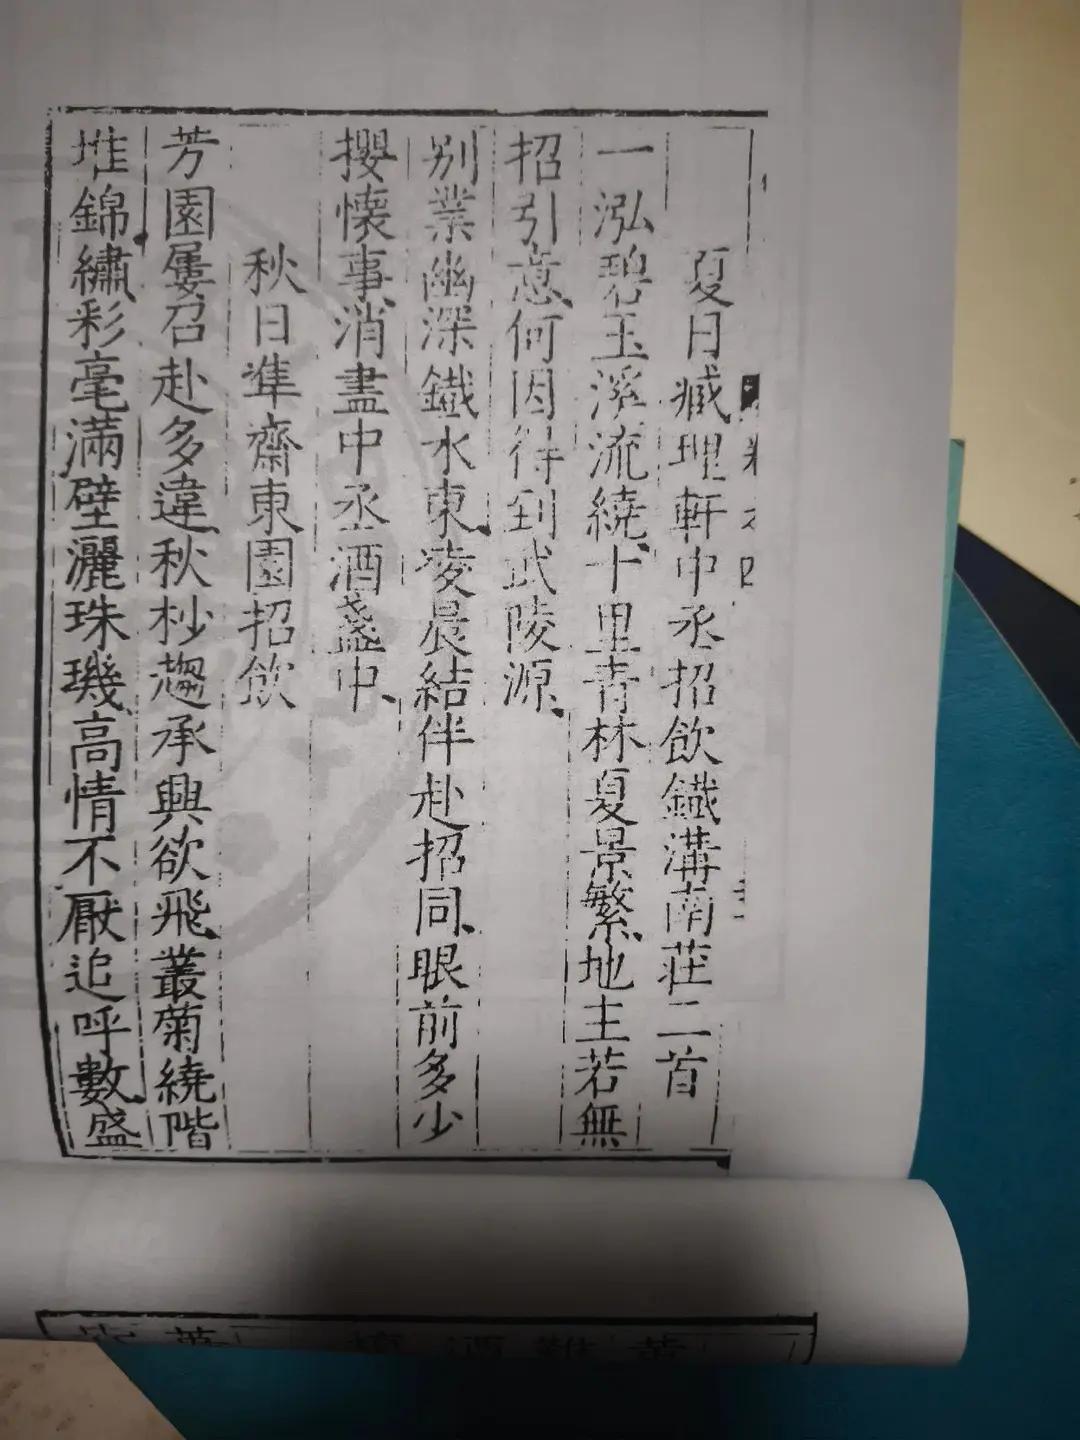 卷之四
夏日臧理軒中丞招飲鐵溝南莊二首
一泓碧玉溪流繞十里青林夏景繁地主若無
招引意何因待到武陵源
别業幽深鐵水東凌晨結伴赴招同眼前多少
攖懷事消盡中丞酒盞中
秋日準齋東園招飲
芳園屢召赴多違秋杪趨承興欲飛叢菊繞階
堆錦繡彩毫滿壁灑珠璣高情不厭追呼數盛